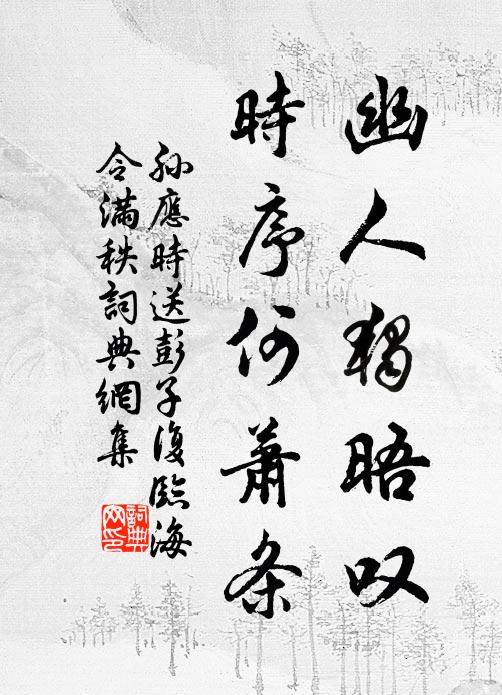 幽人独晤叹
時序何蕭条
孙應時送彭子復臨海
令滿秩詞典網集
詞典
网印